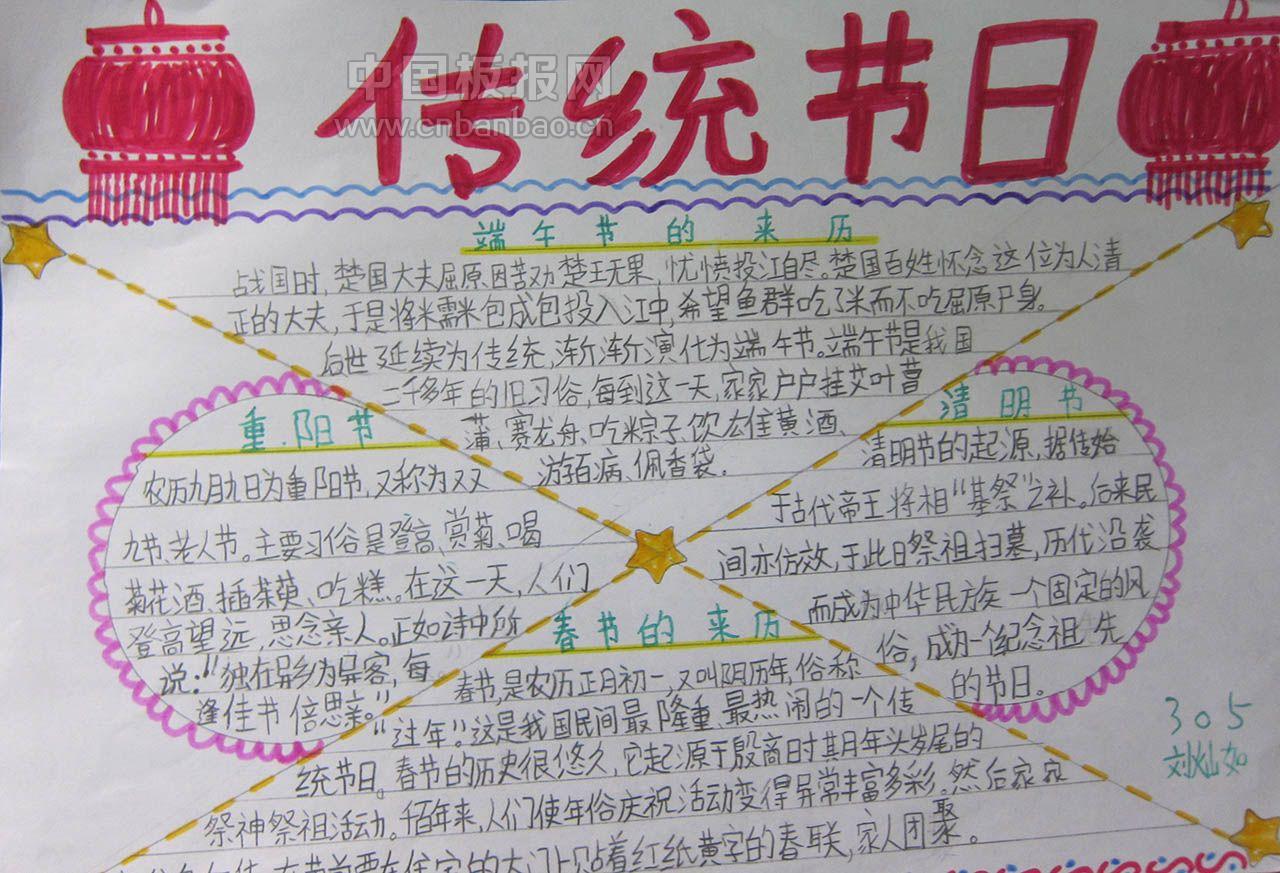 传统节日
中国板报网
www.cnbanbao.cn
端午节的来历
战国时,楚国大夫屈原因苦劝楚王无果,忧愤投江自尽。楚国百姓怀念这位为人清
正的大夫,于是将米需米包成包投入江中,希望鱼群吃了米而不吃屈原尸身。
后世延续为传统,渐渐演化为端午节。端午节是我国
二千多年的旧习俗,每到这一天,家家户户挂艾叶菖
蒲、赛龙舟、吃粽子、饮雄黄酒、
游百病、佩香袋.
重阳节
农历九月九日为重阳节,又称为双
九节、老人节。主要习俗是登高、赏菊、喝
菊花酒、插茱萸、吃糕。在这一天,人们
登高望远,思念亲人。正如诗中所
说:“独在异乡为异客,每
逢佳节倍思亲。”
清明节
清明节的起源,据传始
于古代帝王将相“墓祭”之礼。后来民
间亦仿效,于此日祭祖扫墓,历代沿袭
而成为中华民族一个固定的风
俗,成为一个纪念祖先
的节日。
春节的来历
春节,是农历正月初一,又叫阴历年,俗称
“过年”。这是我国民间最隆重、最热闹的一个传
统节日。春节的历史很悠久,它起源于殷商时期年头岁尾的
祭神祭祖活动。千百年来,人们使年俗庆祝活动变得异常丰富多彩。然后家家
在节前要在住宅的大门上贴着红纸黄字的春联,家人团聚。
305
刘灿如